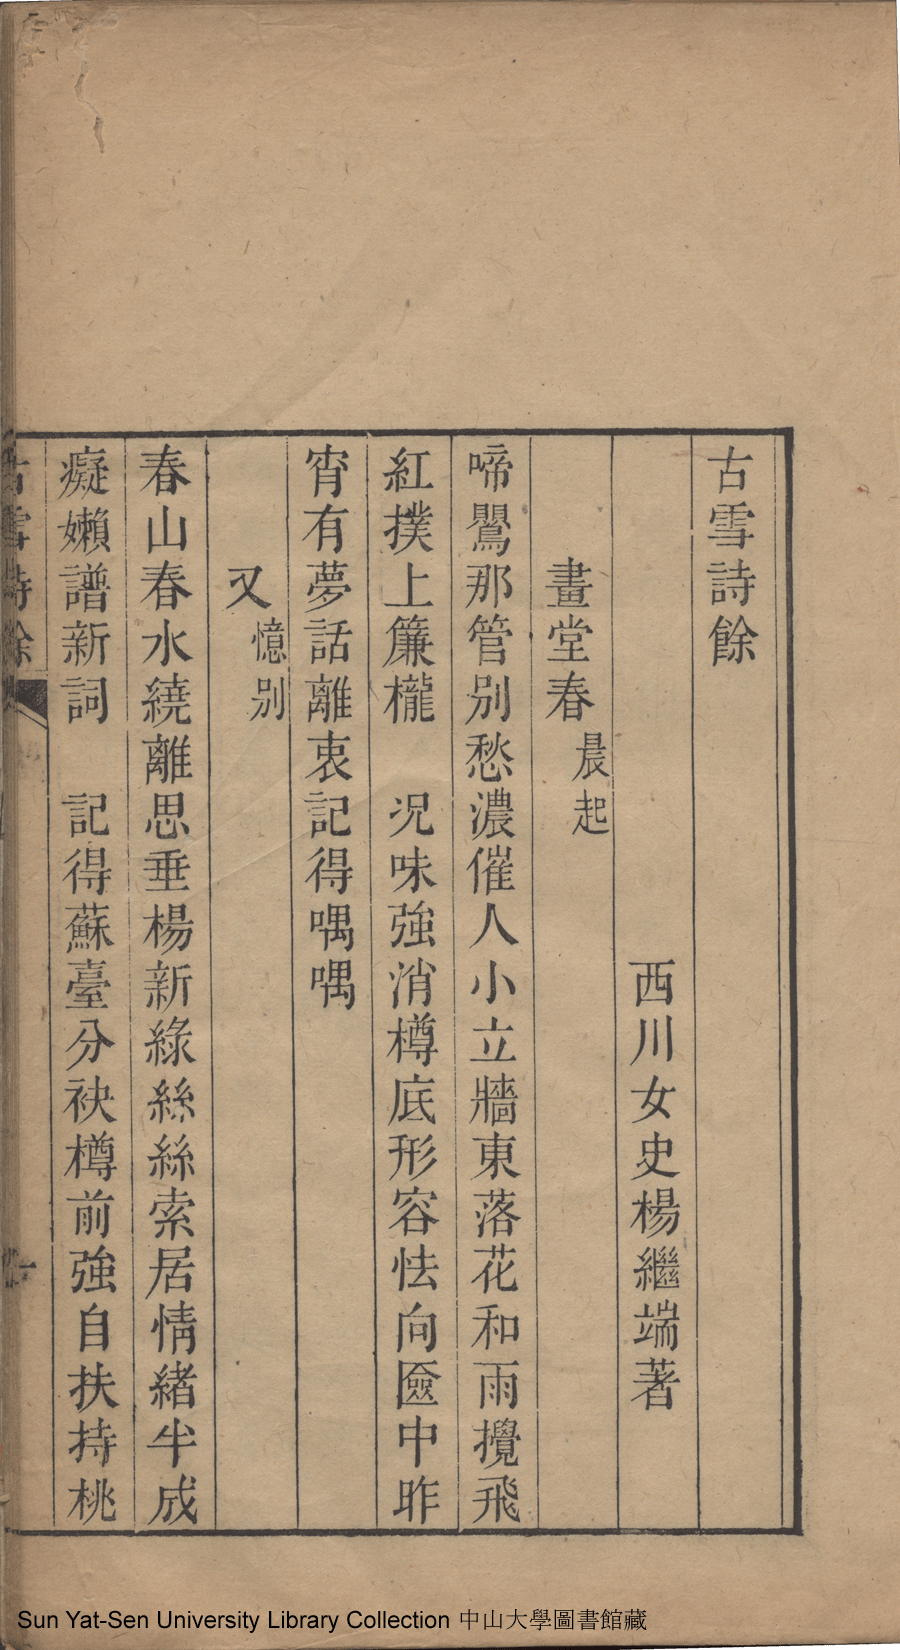 古雪詩餘
西川女史楊繼端著
畫堂春 晨起
啼鸎那管别愁濃催人小立牆東落花和雨攪飛
紅撲上簾櫳　况味強消樽底形容怯向匳中昨
宵有夢話離衷記得喁喁
又 憶别
春山春水繞離思垂楊新綠絲絲索居情緒半成
癡嬾譜新詞　記得蘇臺分袂樽前強自扶持桃
古雪詩餘
一
Sun Yat-Sen University Library Collection 中山大學圖書館藏